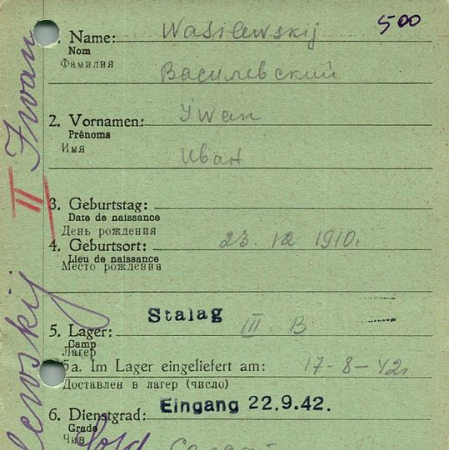 500
Name: Wasilewskij
Nom
Фамилия
Василевский
2. Vornamen: Iwan
Prénoms
Имя
Иван
3. Geburtstag:
Date de naissance
День рождения
23. 12 1910.
4. Geburtsort:
Lieu de naissance
Место рождения
Stalag
5. Lager: III B
Camp
Лагер
5a. Im Lager eingeliefert am: 17-8-42
Доставлен в лагер (число)
Eingang 22.9.42.
6. Dienstgrad:
Grade
Чин
Sold
Солдат
II Iwan
lewskij